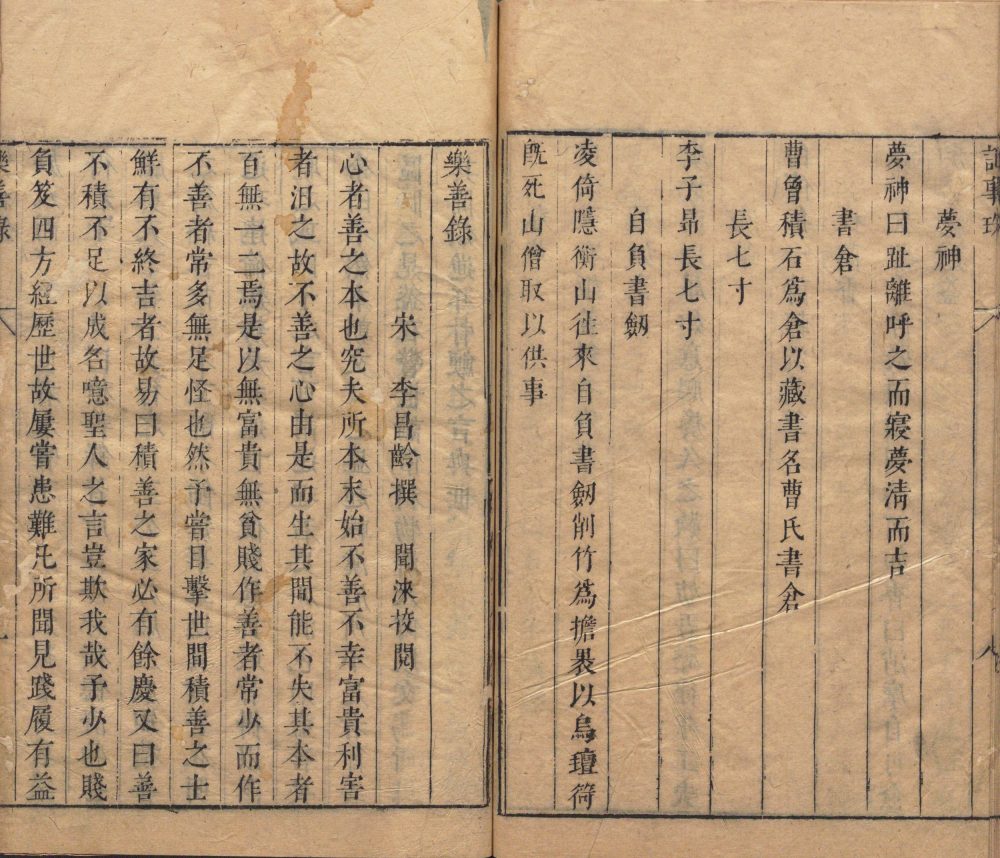 記事珠
八
夢神
夢神曰趾離呼之而寢夢清而吉
書倉
曹曾積石爲倉以藏書名曹氏書倉
長七寸
李子昻長七寸
自負書劔
凌倚隱衡山往來自負書劔削竹爲擔裹以烏氊倚
旣死山僧取以供事
樂善錄
宋 李昌齡撰 聞淶挍閱
心者善之本也究夫所本末始不善不幸富貴利害
者汨之故不善之心由是而生其間能不失其本者
百無一二焉是以無富貴無貧賤作善者常少而作
不善者常多無足怪也然予嘗目擊世間積善之士
鮮有不終吉者故易曰積善之家必有餘慶又曰善
不積不足以成名噫聖人之言豈欺我哉予少也賤
負笈四方經歷世故屢嘗患難凡所聞見踐履有益
樂善錄